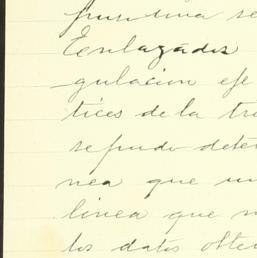 se
Eenlazados
gulacion eje
tices de la tri
se pudo deter
nea que un
linea que
los datos obten